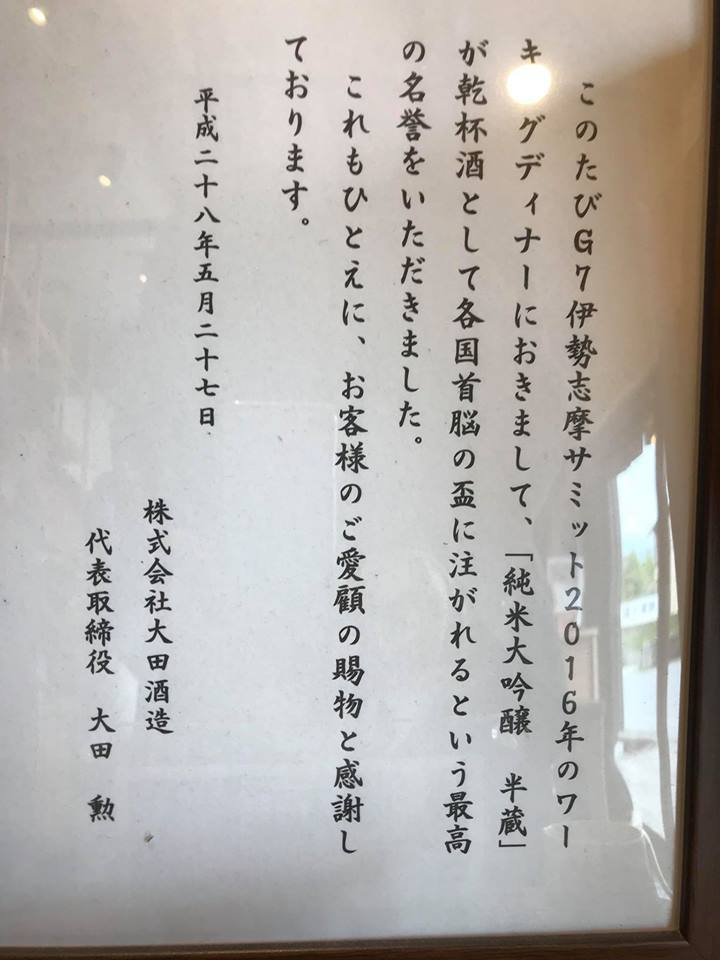 このたびG7伊勢志摩サミット2016年のワー
キ グディナーにおきまして、「純米大吟醸　半蔵」
が乾杯酒として各国首脳の盃に注がれるという最高
の名誉をいただきました。
これもひとえに、お客様のご愛顧の賜物と感謝し
ております。
平成二十八年五月二十七日
株式会社大田酒造
代表取締役　大田　勲